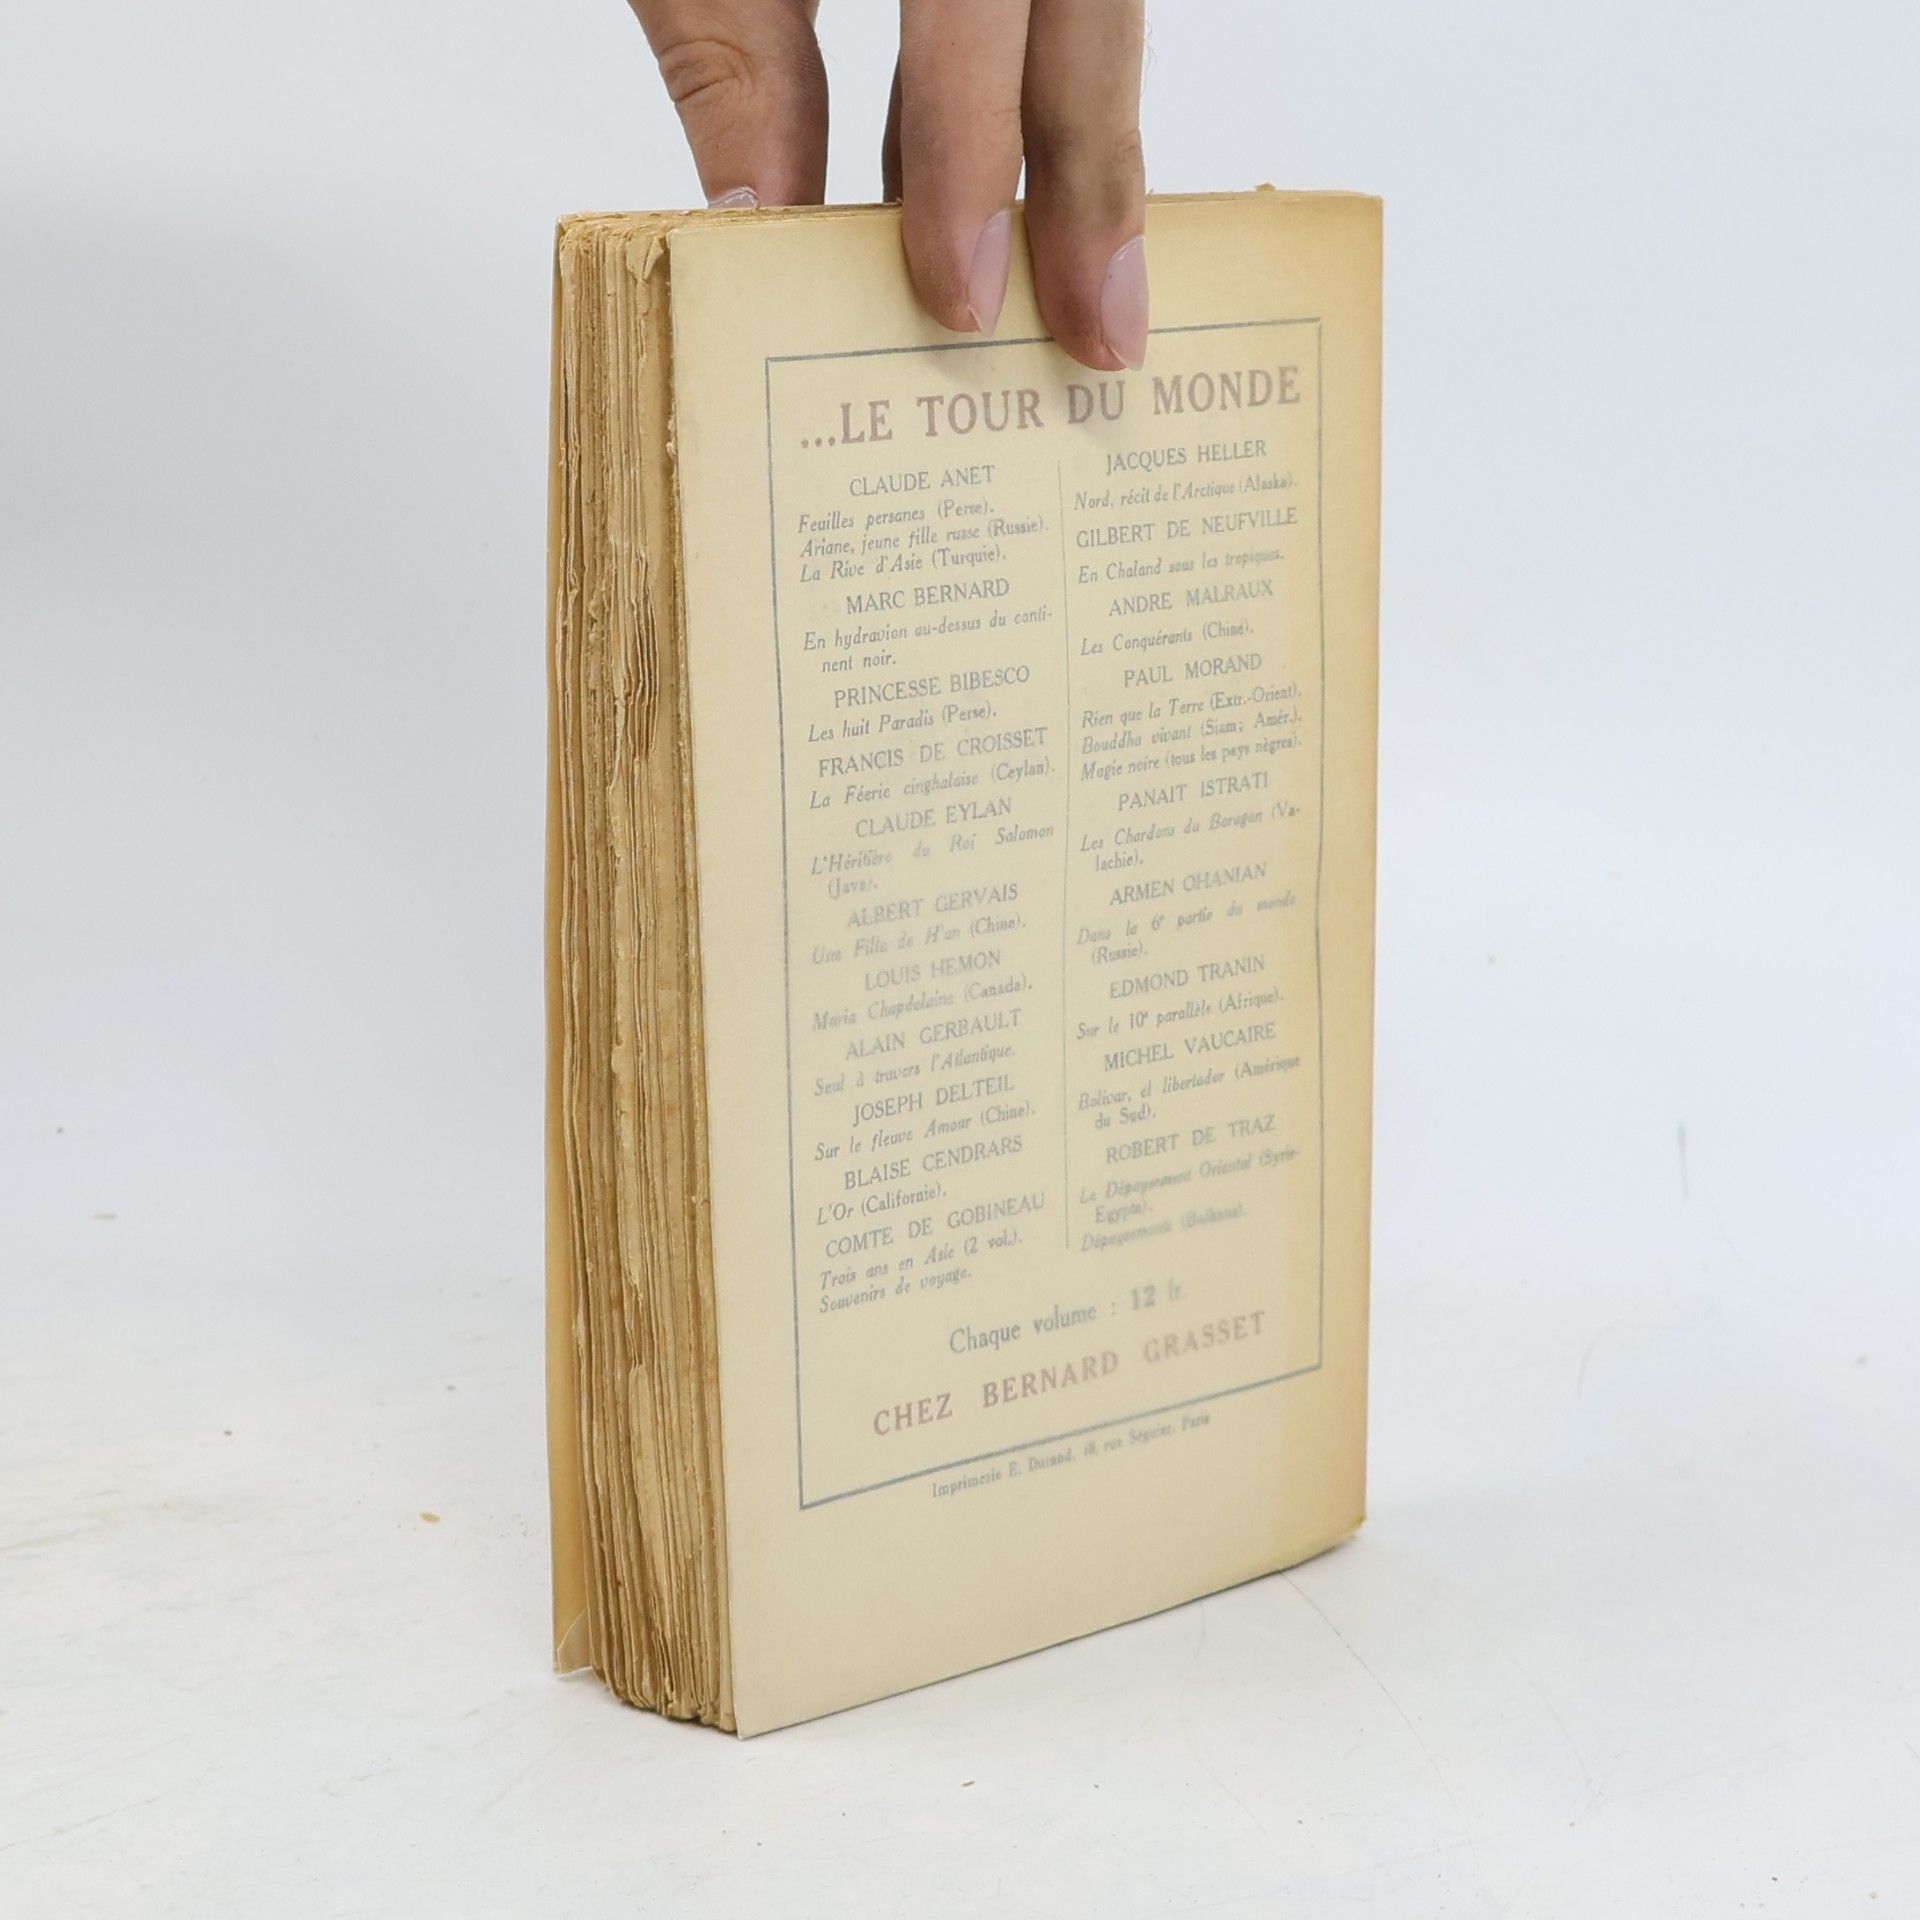 ...LE TOUR DU MONDE
CLAUDE ANET
Feuilles persanes (Perse).
Ariane, jeune fille russe (Russie).
La Rive d'Asie (Turquie).
MARC BERNARD
En hydravion au-dessus du conti-
nent noir.
PRINCESSE BIBESCO
Les huit Paradis (Perse).
FRANCIS DE CROISSET
La Féerie cinghalaise (Ceylan).
CLAUDE EYLAN
L'Héritière du Roi Salomon
(Java).
ALBERT GERVAIS
Une Fille de H'an (Chine).
LOUIS HEMON
Maria Chapdelaine (Canada).
ALAIN GERBAULT
Seul à travers l'Atlantique.
JOSEPH DELTEIL
Sur le fleuve Amour (Chine).
BLAISE CENDRARS
L'Or (Californie).
COMTE DE GOBINEAU
Trois ans en Asie (2 vol.).
Souvenirs de voyage.
JACQUES HELLER
Nord, récit de l'Arctique (Alaska).
GILBERT DE NEUFVILLE
En Chaland sous les tropiques.
ANDRE MALRAUX
Les Conquérants (Chine).
PAUL MORAND
Rien que la Terre (Extr.-Orient).
Bouddha vivant (Siam, Amér.).
Magie noire (tous les pays nègres).
PANAIT ISTRATI
Les Chardons du Baragan (Va-
lachie).
ARMEN OHANIAN
Dans la 6e partie du monde
(Russie).
EDMOND TRANIN
Sur le 10e parallèle (Afrique).
MICHEL VAUCAIRE
Bolivar, el libertador (Amérique
du Sud).
ROBERT DE TRAZ
Le Dépaysement Oriental (Syrie-
Egypte).
Dépaysements (Balkans).
Chaque volume : 12 fr.
CHEZ BERNARD GRASSET
Imprimerie E. Durand, 18, rue Séguier, Paris